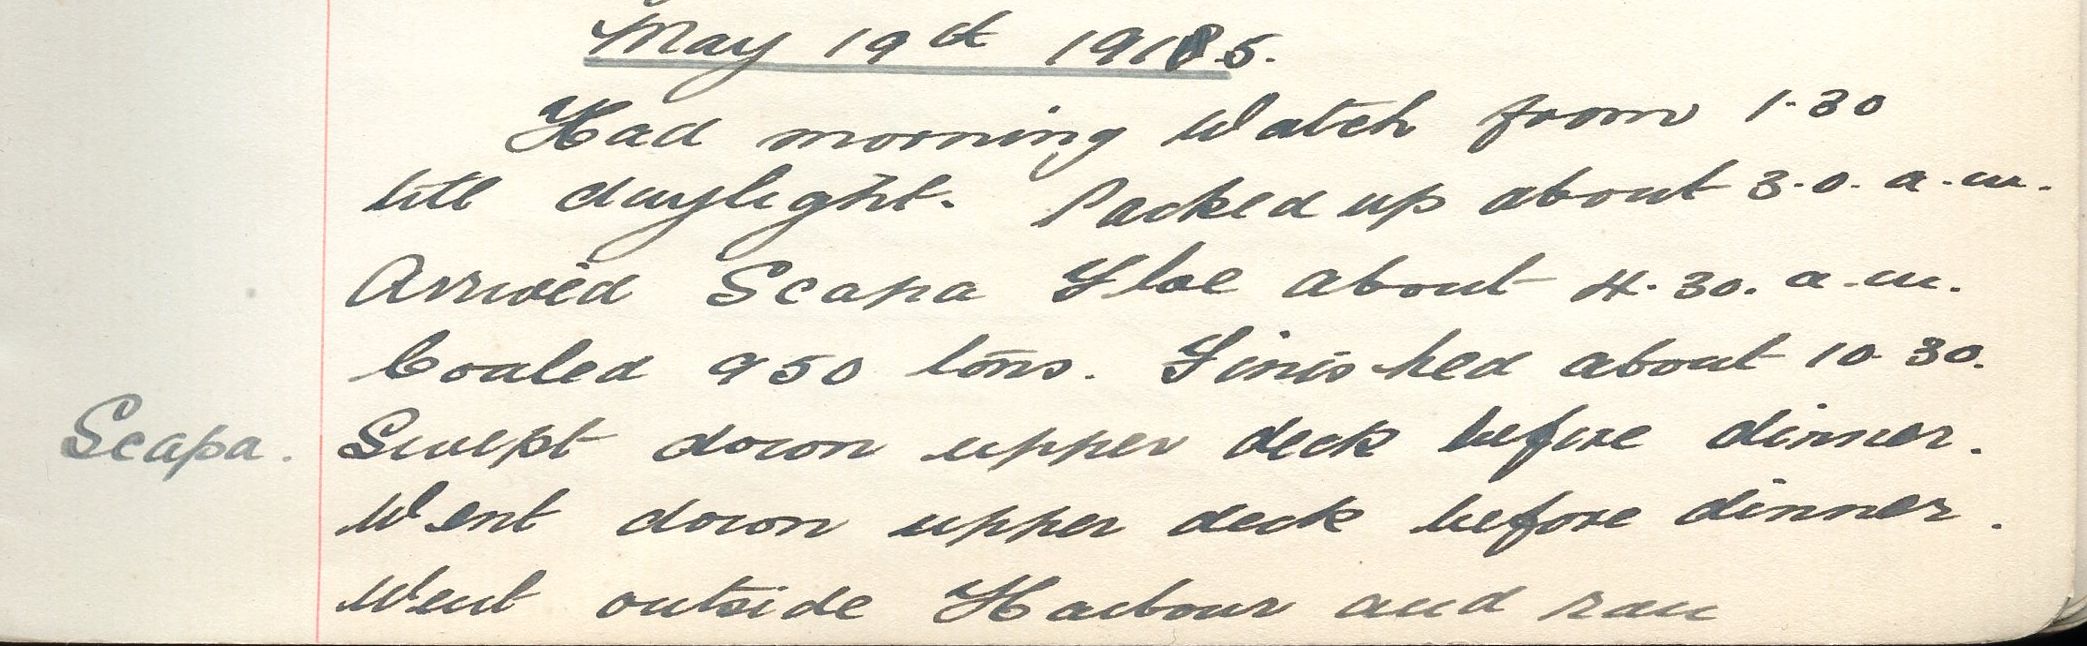 May 19d 1915.
Had morning Watch from 1.30
till daylight. Packed up about 3.0. a.m.
Arrived Scapa Floe about 4.30. a.m.
Coaled 950 tons. Finished about 10 30.
Scapa. Swept down upper deck before dinner.
Went down upper deck before dinner.
Went outside Harbour and ran